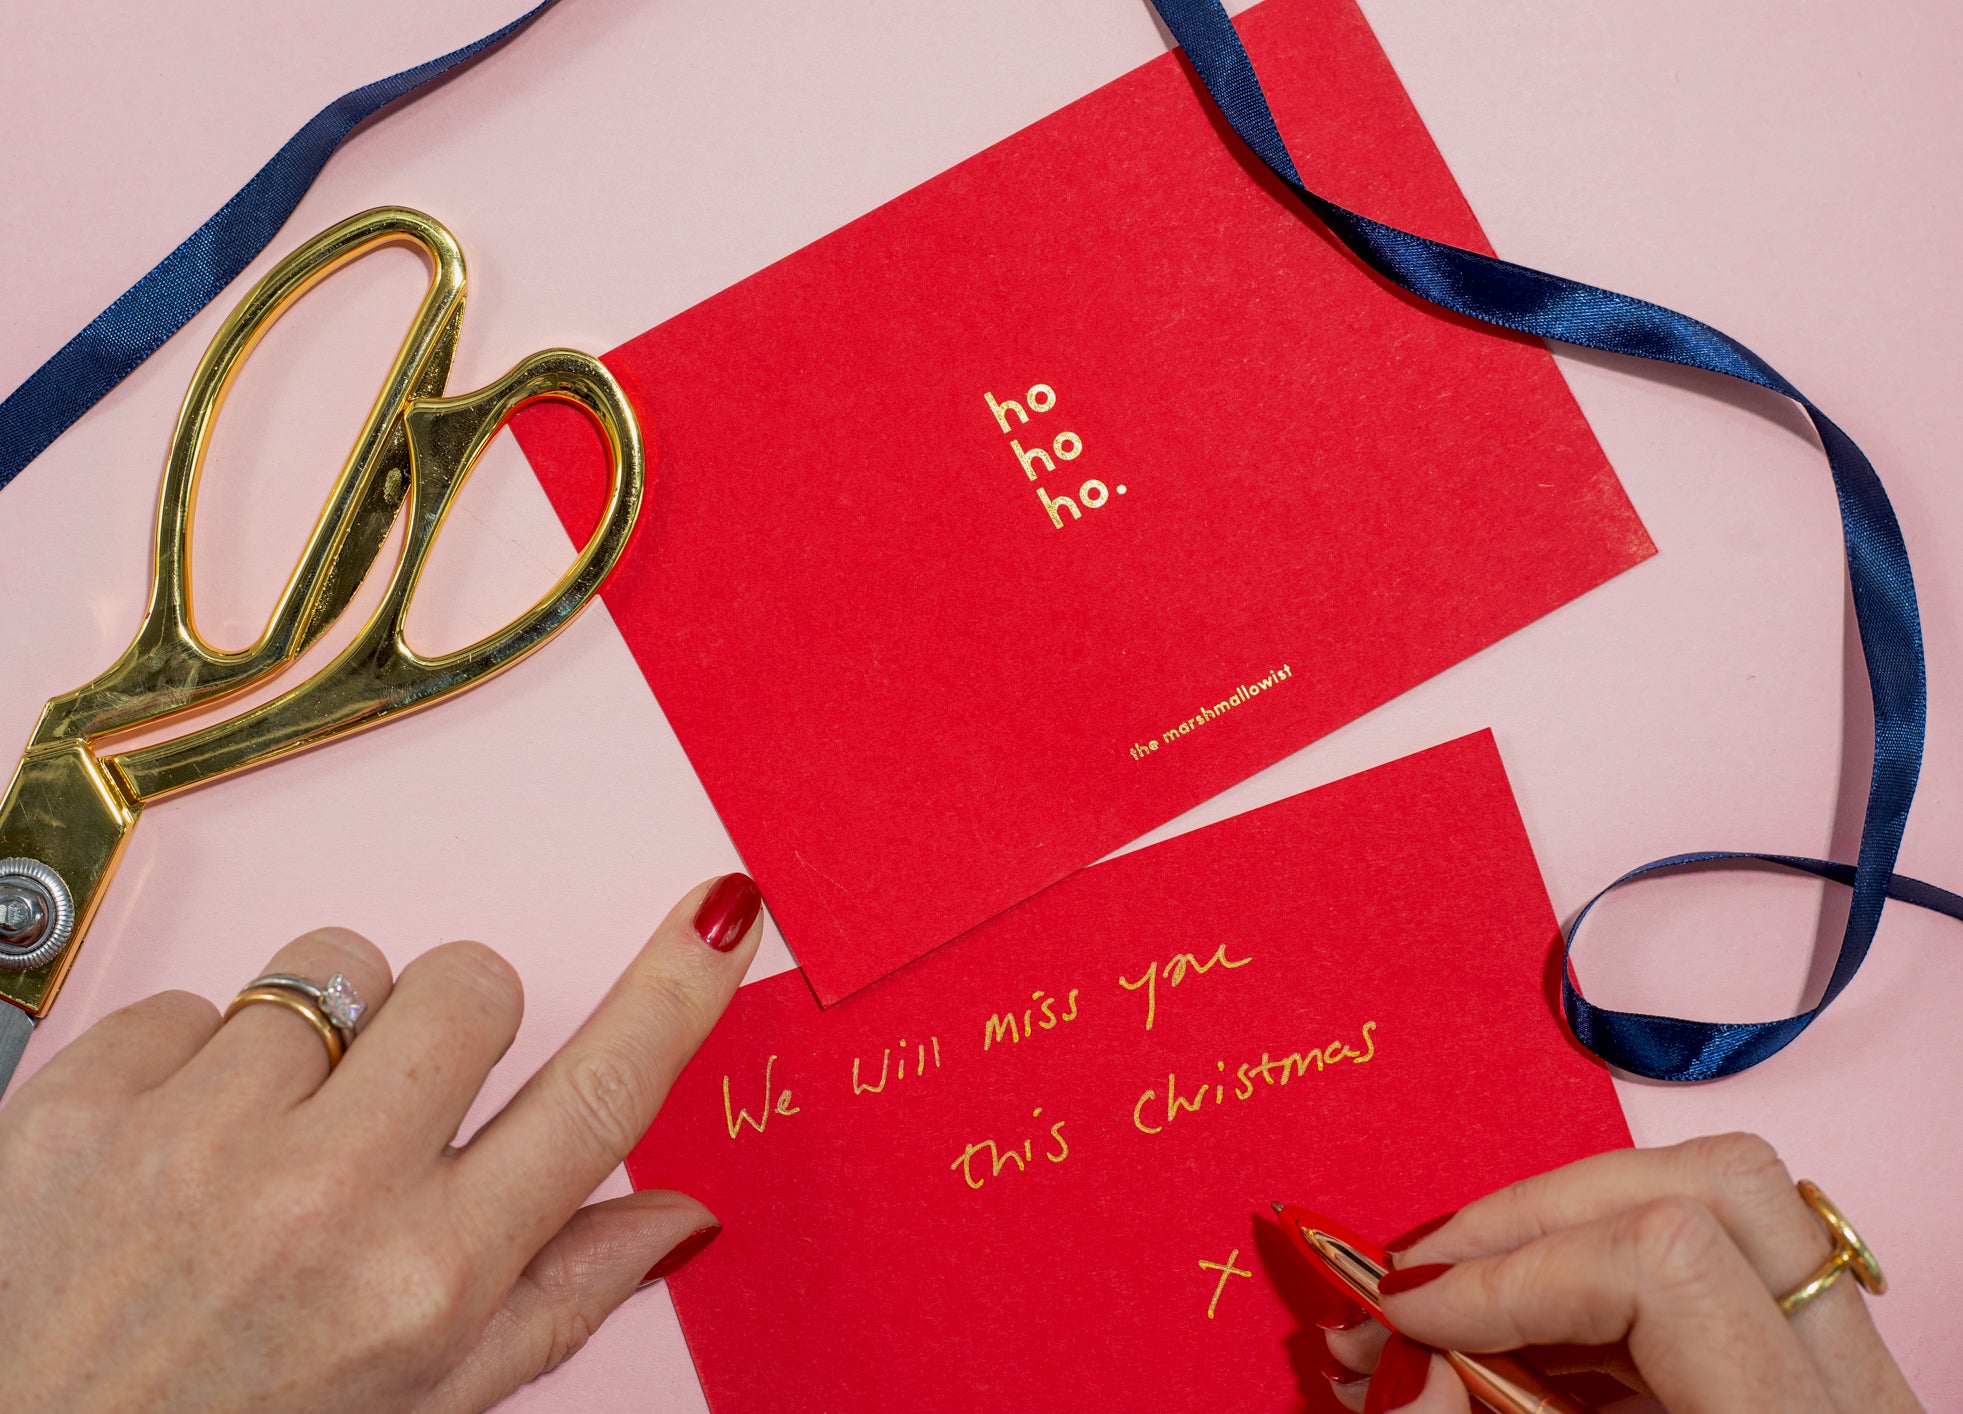 ho
ho
ho.
the marshmallowist
We will miss you
this Christmas
X